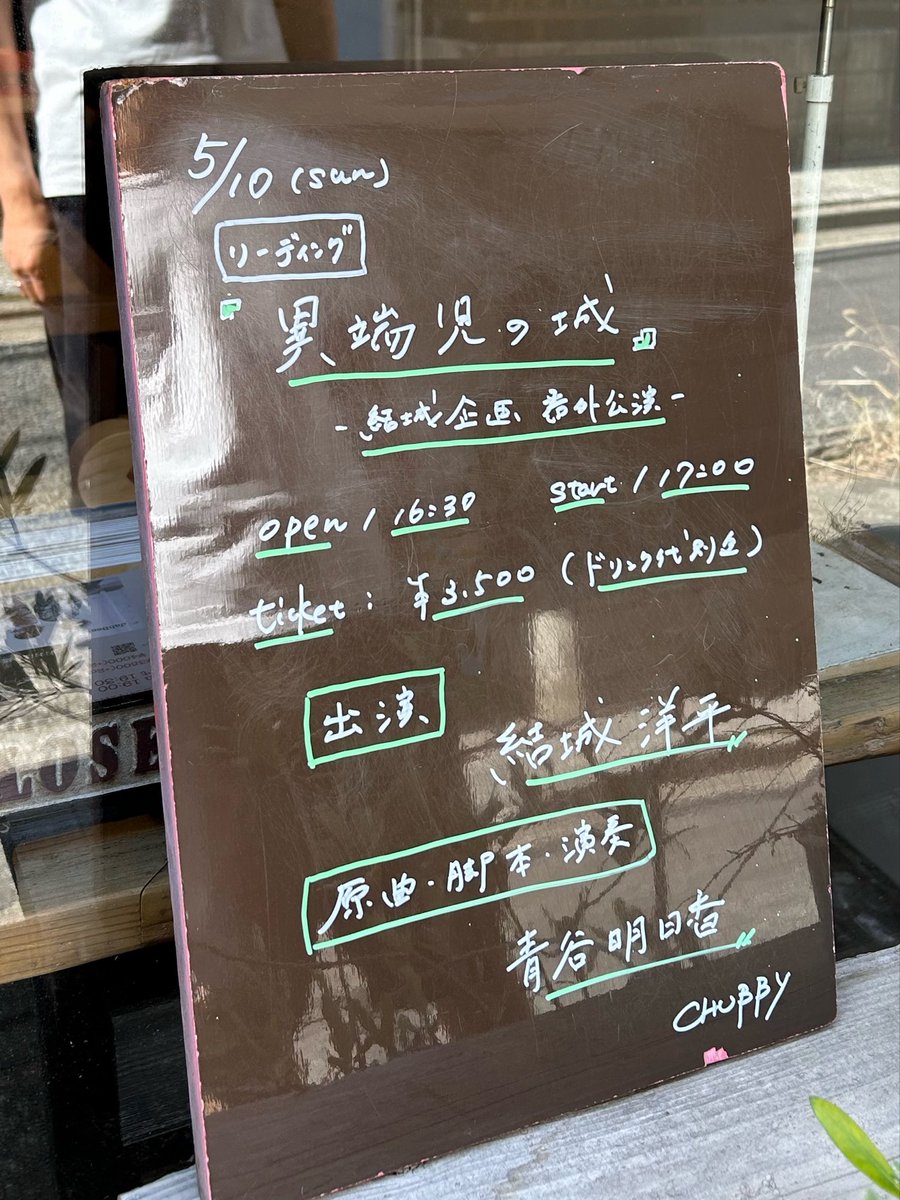 5/10 (sun)
リーディング
『異端児の城』
-結城企画 番外公演-
open / 16:30 start / 17:00
ticket: ¥3.500 (ドリンク代別途)
出演
結城洋平
原曲・脚本・演奏
青谷明日香
CHUBBY
LOSE
19:30
19:00